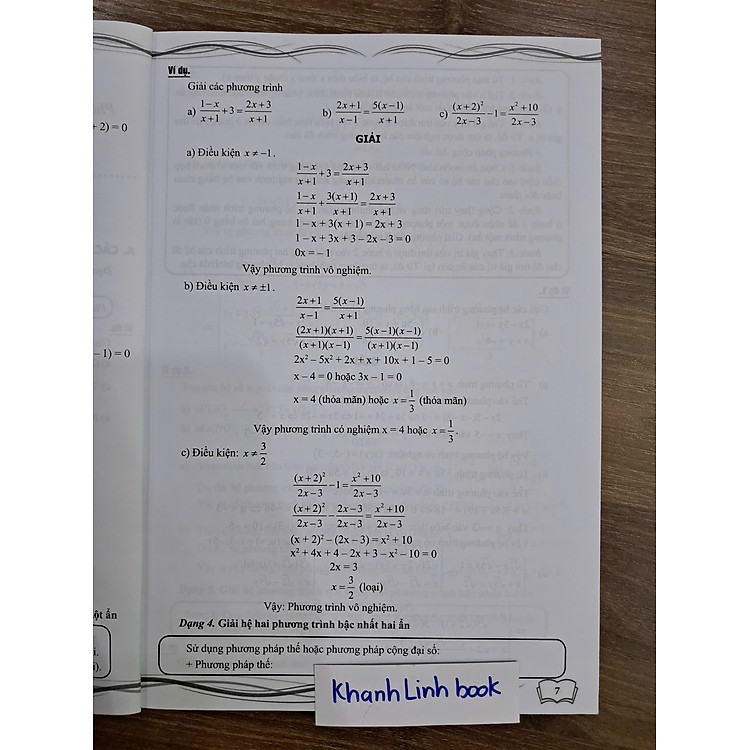 Ví dụ.
Giải các phương trình
+ 2) = 0
a) \frac{1-x}{x+1}+3=\frac{2x+3}{x+1} b) \frac{2x+1}{x-1}=\frac{5(x-1)}{x+1} c) \frac{(x+2)^2}{2x-3}-1=\frac{x^2+10}{2x-3}
GIẢI
a) Điều kiện x ≠ -1.
\frac{1-x}{x+1}+3=\frac{2x+3}{x+1}
\frac{1-x}{x+1}+\frac{3(x+1)}{x+1}=\frac{2x+3}{x+1}
1 – x + 3(x + 1) = 2x + 3
1 – x + 3x + 3 – 2x – 3 = 0
0x = – 1
Vậy phương trình vô nghiệm.
b) Điều kiện x ≠ ±1.
\frac{2x+1}{x-1}=\frac{5(x-1)}{x+1}
\frac{(2x+1)(x+1)}{(x+1)(x-1)}=\frac{5(x-1)(x-1)}{(x+1)(x-1)}
– 1) = 0
2x² – 5x² + 2x + x + 10x + 1 – 5 = 0
x – 4 = 0 hoặc 3x – 1 = 0
x = 4 (thỏa mãn) hoặc x = \frac{1}{3} (thỏa mãn)
Vậy phương trình có nghiệm x = 4 hoặc x = \frac{1}{3}.
c) Điều kiện: x ≠ \frac{3}{2}
\frac{(x+2)^2}{2x-3}-1=\frac{x^2+10}{2x-3}
\frac{(x+2)^2}{2x-3}-\frac{2x-3}{2x-3}=\frac{x^2+10}{2x-3}
(x + 2)² – (2x – 3) = x² + 10
x² + 4x + 4 – 2x + 3 – x² – 10 = 0
2x = 3
x = \frac{3}{2} (loại)
Vậy: Phương trình vô nghiệm.
ột ẩn
Dạng 4. Giải hệ hai phương trình bậc nhất hai ẩn
Sử dụng phương pháp thế hoặc phương pháp cộng đại số:
+ Phương pháp thế:
Khanh Linh book
7